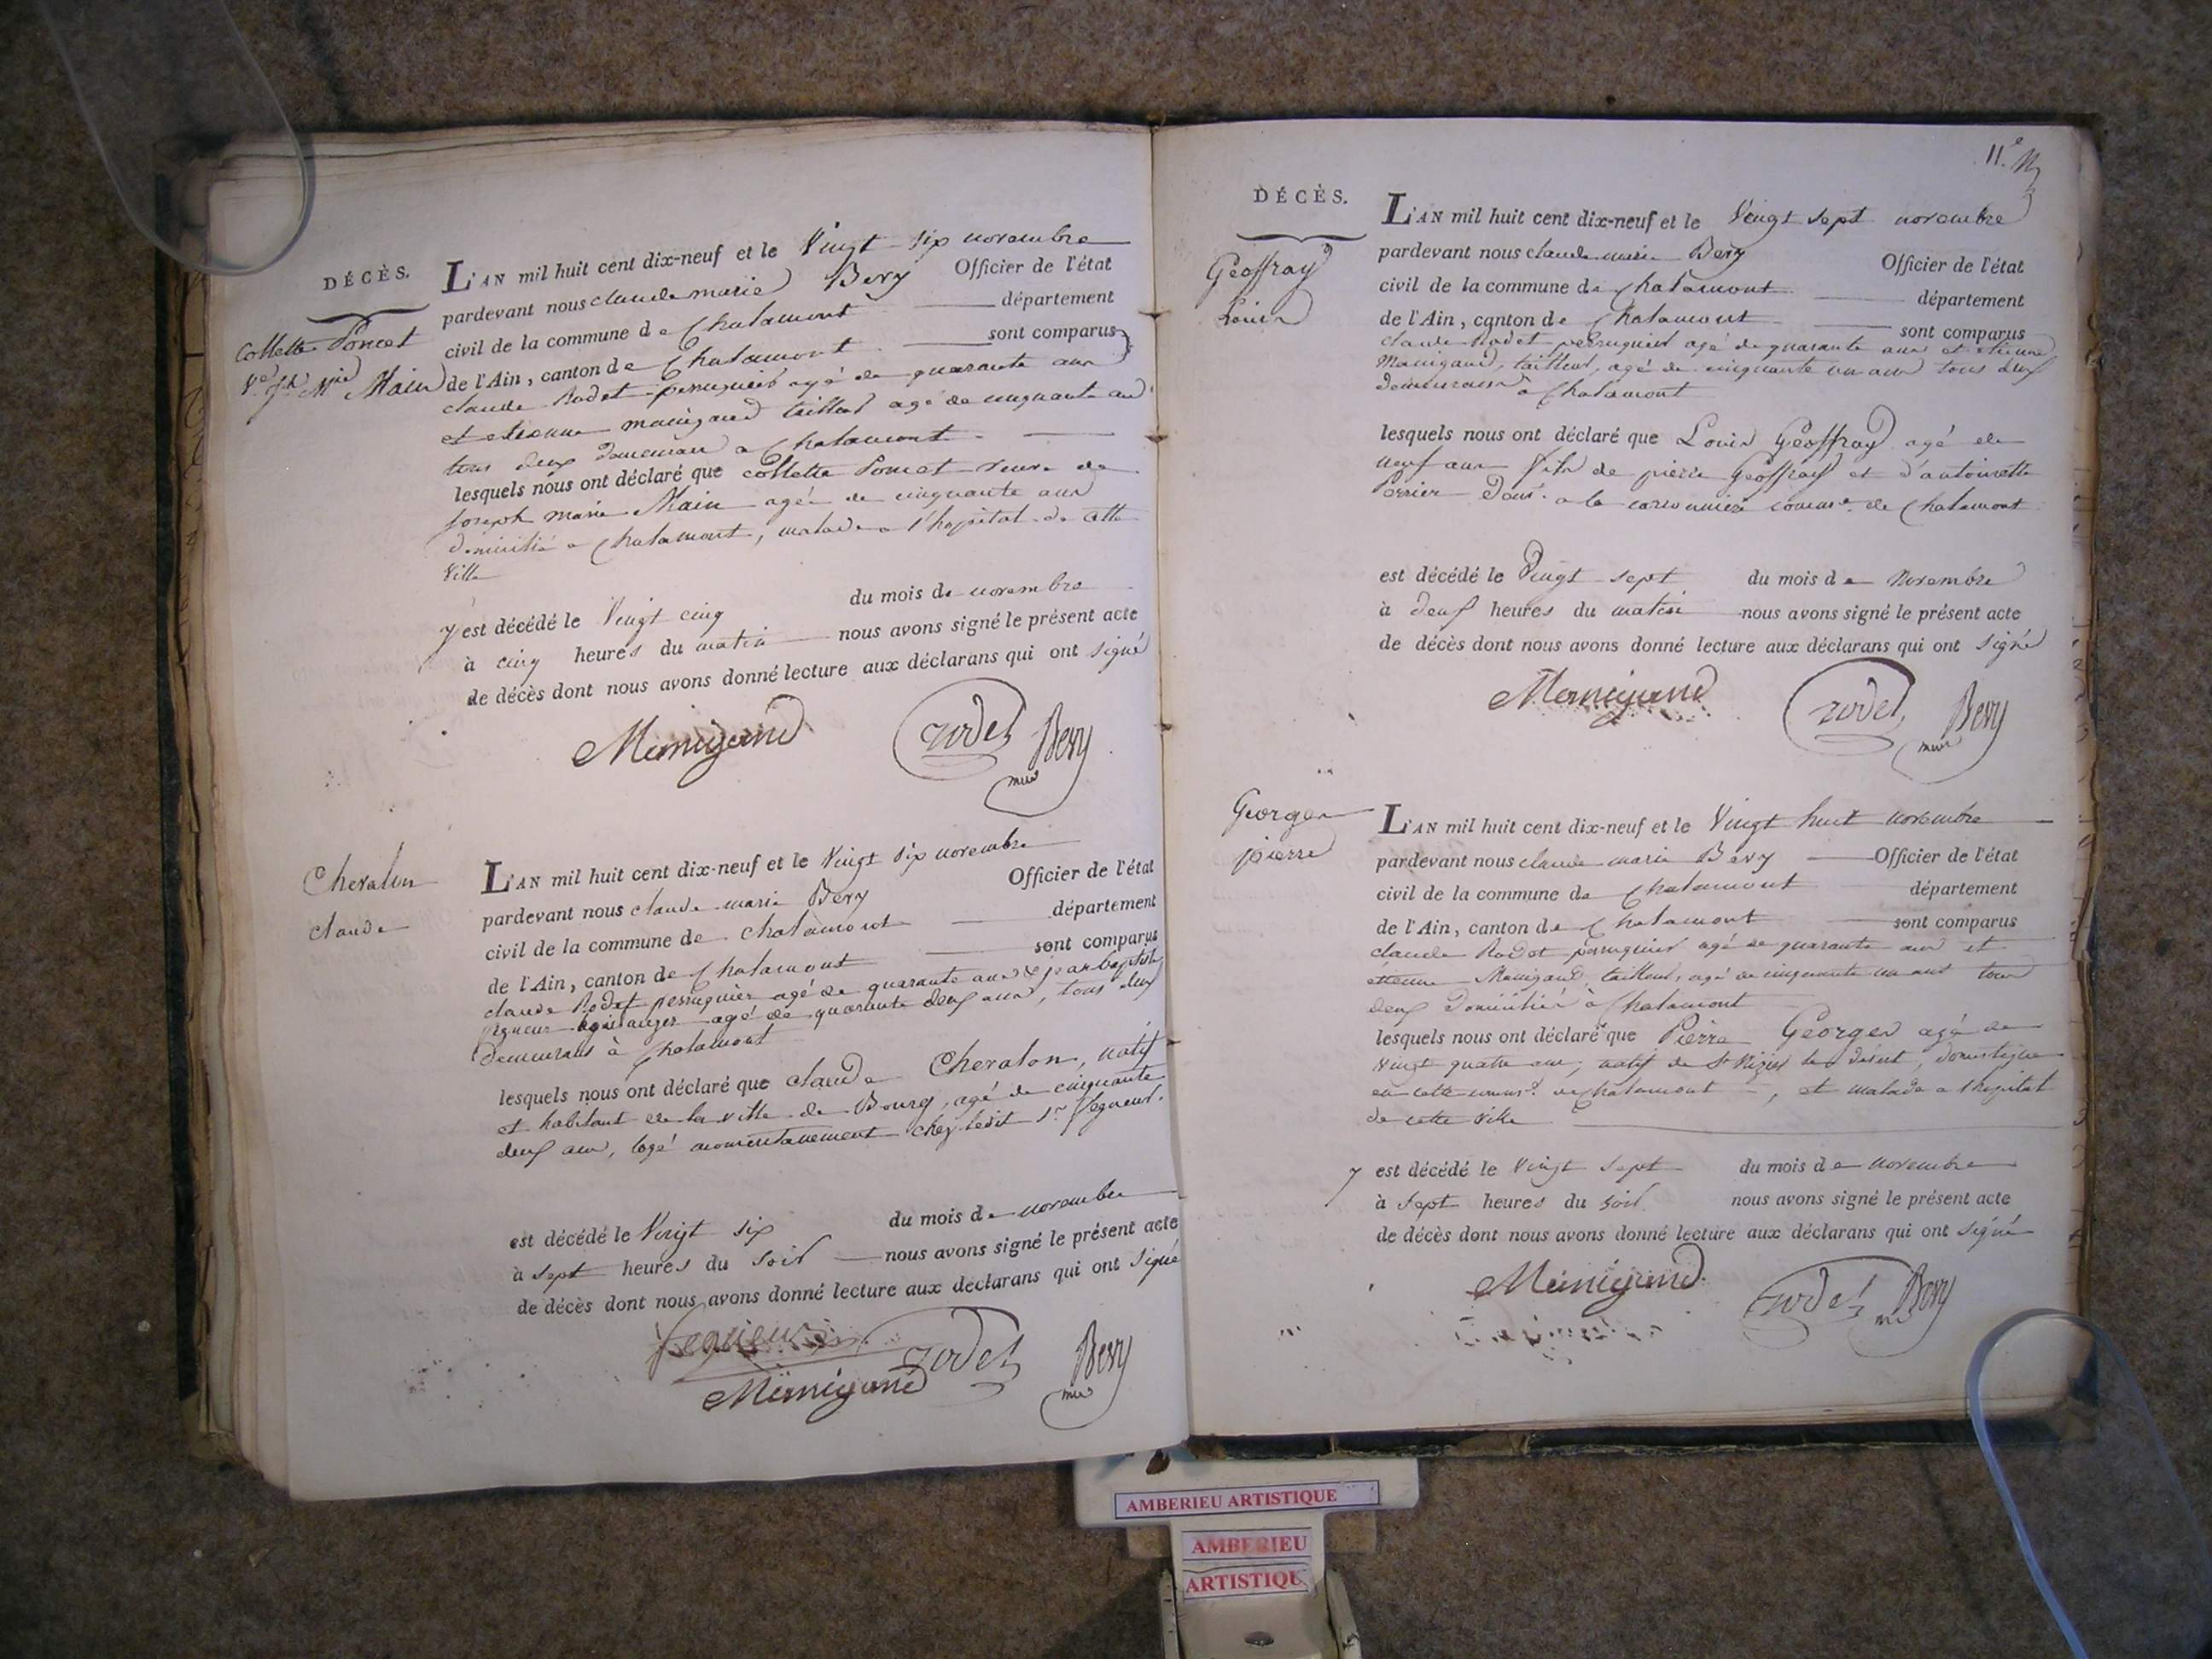 DÉCÈS.
Collette Poncet
Ve Jh Mie Main
L'AN mil huit cent dix-neuf et le Vingt six novembre
pardevant nous claude marie Bery Officier de l'état
civil de la commune de Chalamont département
de l'Ain, canton de Chalamont sont comparus
claude Rodet perruquier agé de quarante ans
et etienne manigand tailleur agé de cinquante ans
tous deux demeurans a Chalamont
lesquels nous ont déclaré que collette Poncet veuve de
joseph marie Main agée de cinquante ans
domicilié a Chalamont, malade a l'hopital de cette
Ville
y est décédé le Vingt cinq du mois de novembre
à cinq heures du matin nous avons signé le présent acte
de décès dont nous avons donné lecture aux déclarans qui ont signé
Manigand rodet Bery
Chevalon
claude
L'AN mil huit cent dix-neuf et le Vingt six novembre
pardevant nous claude marie Bery Officier de l'état
civil de la commune de chalamont département
de l'Ain, canton de Chalamont sont comparus
claude Rodet perruquier agé de quarante ans & jean baptiste
boulanger agé de quarante deux ans, tous deux
demeurans à Chalamont
lesquels nous ont déclaré que claude Chevalon, natif
et habitant de la ville de Bourg, agé de cinquante
deux ans, logé momentanement chez ledit Sr
est décédé le Vingt six du mois de novembre
à sept heures du soir nous avons signé le présent acte
de décès dont nous avons donné lecture aux déclarans qui ont signé
rodet Bery
Manigand
11.e
DÉCÈS.
Geoffray
Louis
L'AN mil huit cent dix-neuf et le Vingt sept novembre
pardevant nous claude marie Bery Officier de l'état
civil de la commune de Chalamont département
de l'Ain, canton de Chalamont sont comparus
claude Rodet perruquier agé de quarante ans et etienne
Manigand, tailleur, agé de cinquante un ans tous deux
demeurans à Chalamont
lesquels nous ont déclaré que Louis Geoffray agé de
neuf ans fils de pierre Geoffray et d'antoinette
Perrier dom. a la comne de Chalamont
est décédé le Vingt sept du mois de Novembre
à deux heures du matin nous avons signé le présent acte
de décès dont nous avons donné lecture aux déclarans qui ont signé
Manigand rodet Bery
Georges
pierre
L'AN mil huit cent dix-neuf et le Vingt huit novembre
pardevant nous claude marie Bery Officier de l'état
civil de la commune de Chalamont département
de l'Ain, canton de Chalamont sont comparus
claude Rodet perruquier agé de quarante ans et
etienne Manigand, tailleur, agé de cinquante un ans tous
deux domiciliés à Chalamont
lesquels nous ont déclaré que Pierre Georges agé de
vingt quatre ans, natif de St Nizier le désert, domestique
en cette comne de Chalamont, et malade a l'hopital
de cette Ville
y est décédé le Vingt sept du mois de novembre
à sept heures du soir nous avons signé le présent acte
de décès dont nous avons donné lecture aux déclarans qui ont signé
Manigand rodet Bery
AMBERIEU ARTISTIQUE
AMBERIEU
ARTISTIQUE